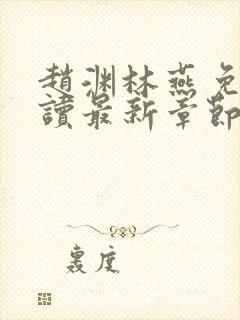 趙淵林燕免
讀最新章節
裏度